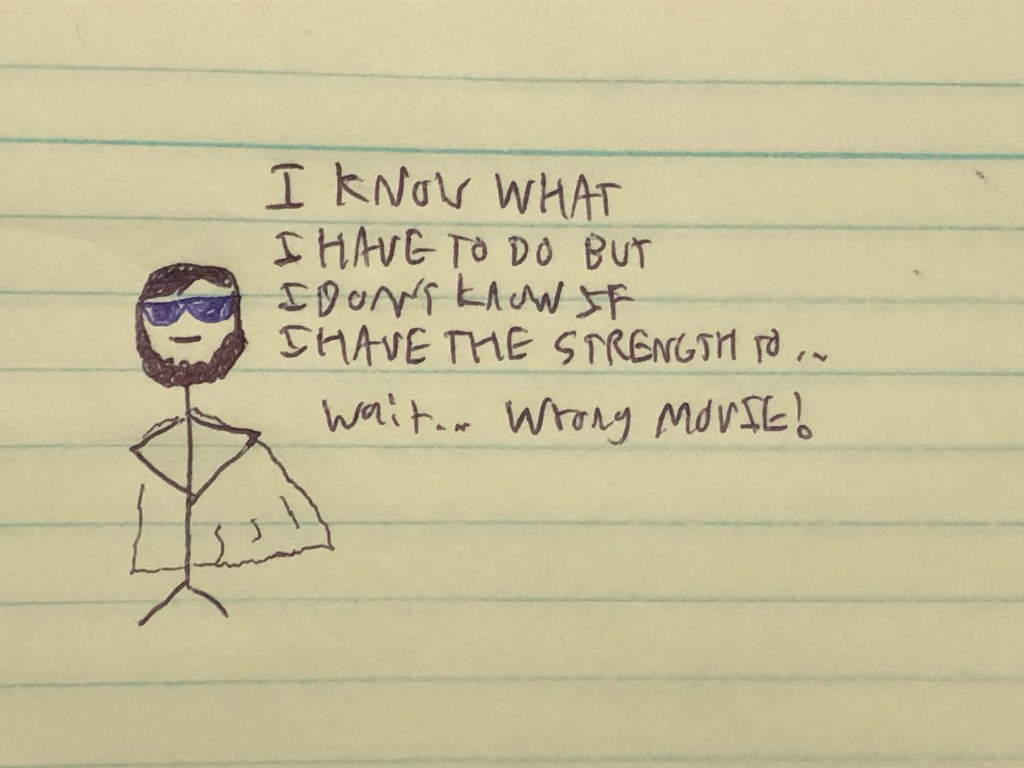 I KNOW WHAT
I HAVE TO DO BUT
I DON'T KNOW IF
I HAVE THE STRENGTH TO...
Wait... Wrong MOVIE!